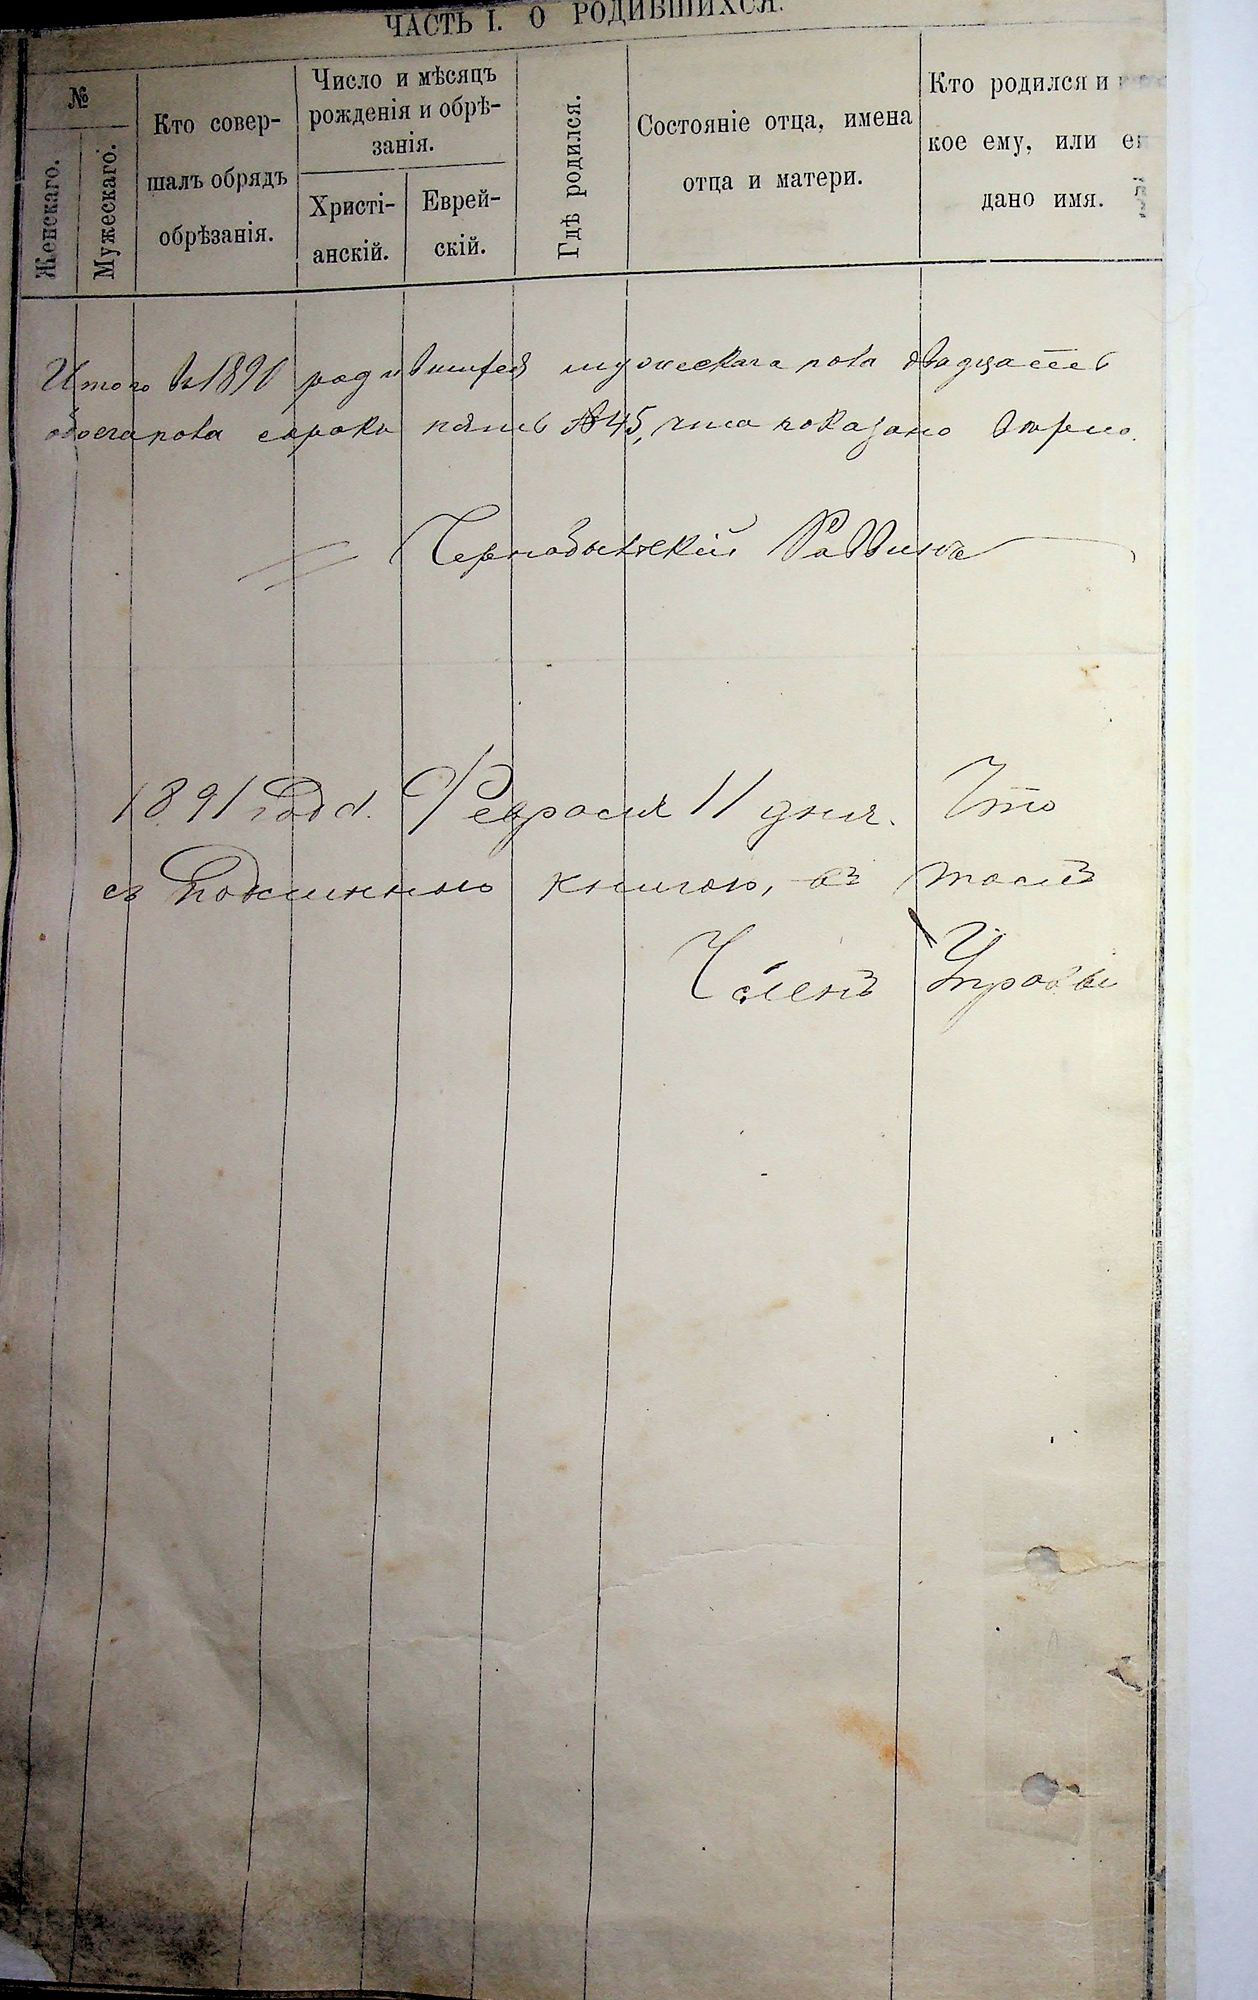 ЧАСТЬ I. О РОДИВШИХСЯ.
№
Женскаго.
Мужескаго.
Кто совер-
шалъ обрядъ
обрѣзанія.
Число и мѣсяцъ
рожденія и обрѣ-
занія.
Христі-
анскій.
Еврей-
скій.
Гдѣ родился.
Состояніе отца, имена
отца и матери.
Кто родился и
кое ему, или
дано имя.
Итого въ 1890 родившихся мужескаго пола двадцать
обоего пола сорокъ пять 45, показано вѣрно.
Раввинъ
1891 года. Февраля 11 дня. Что
съ подлинною книгою, въ томъ
Членъ Управы